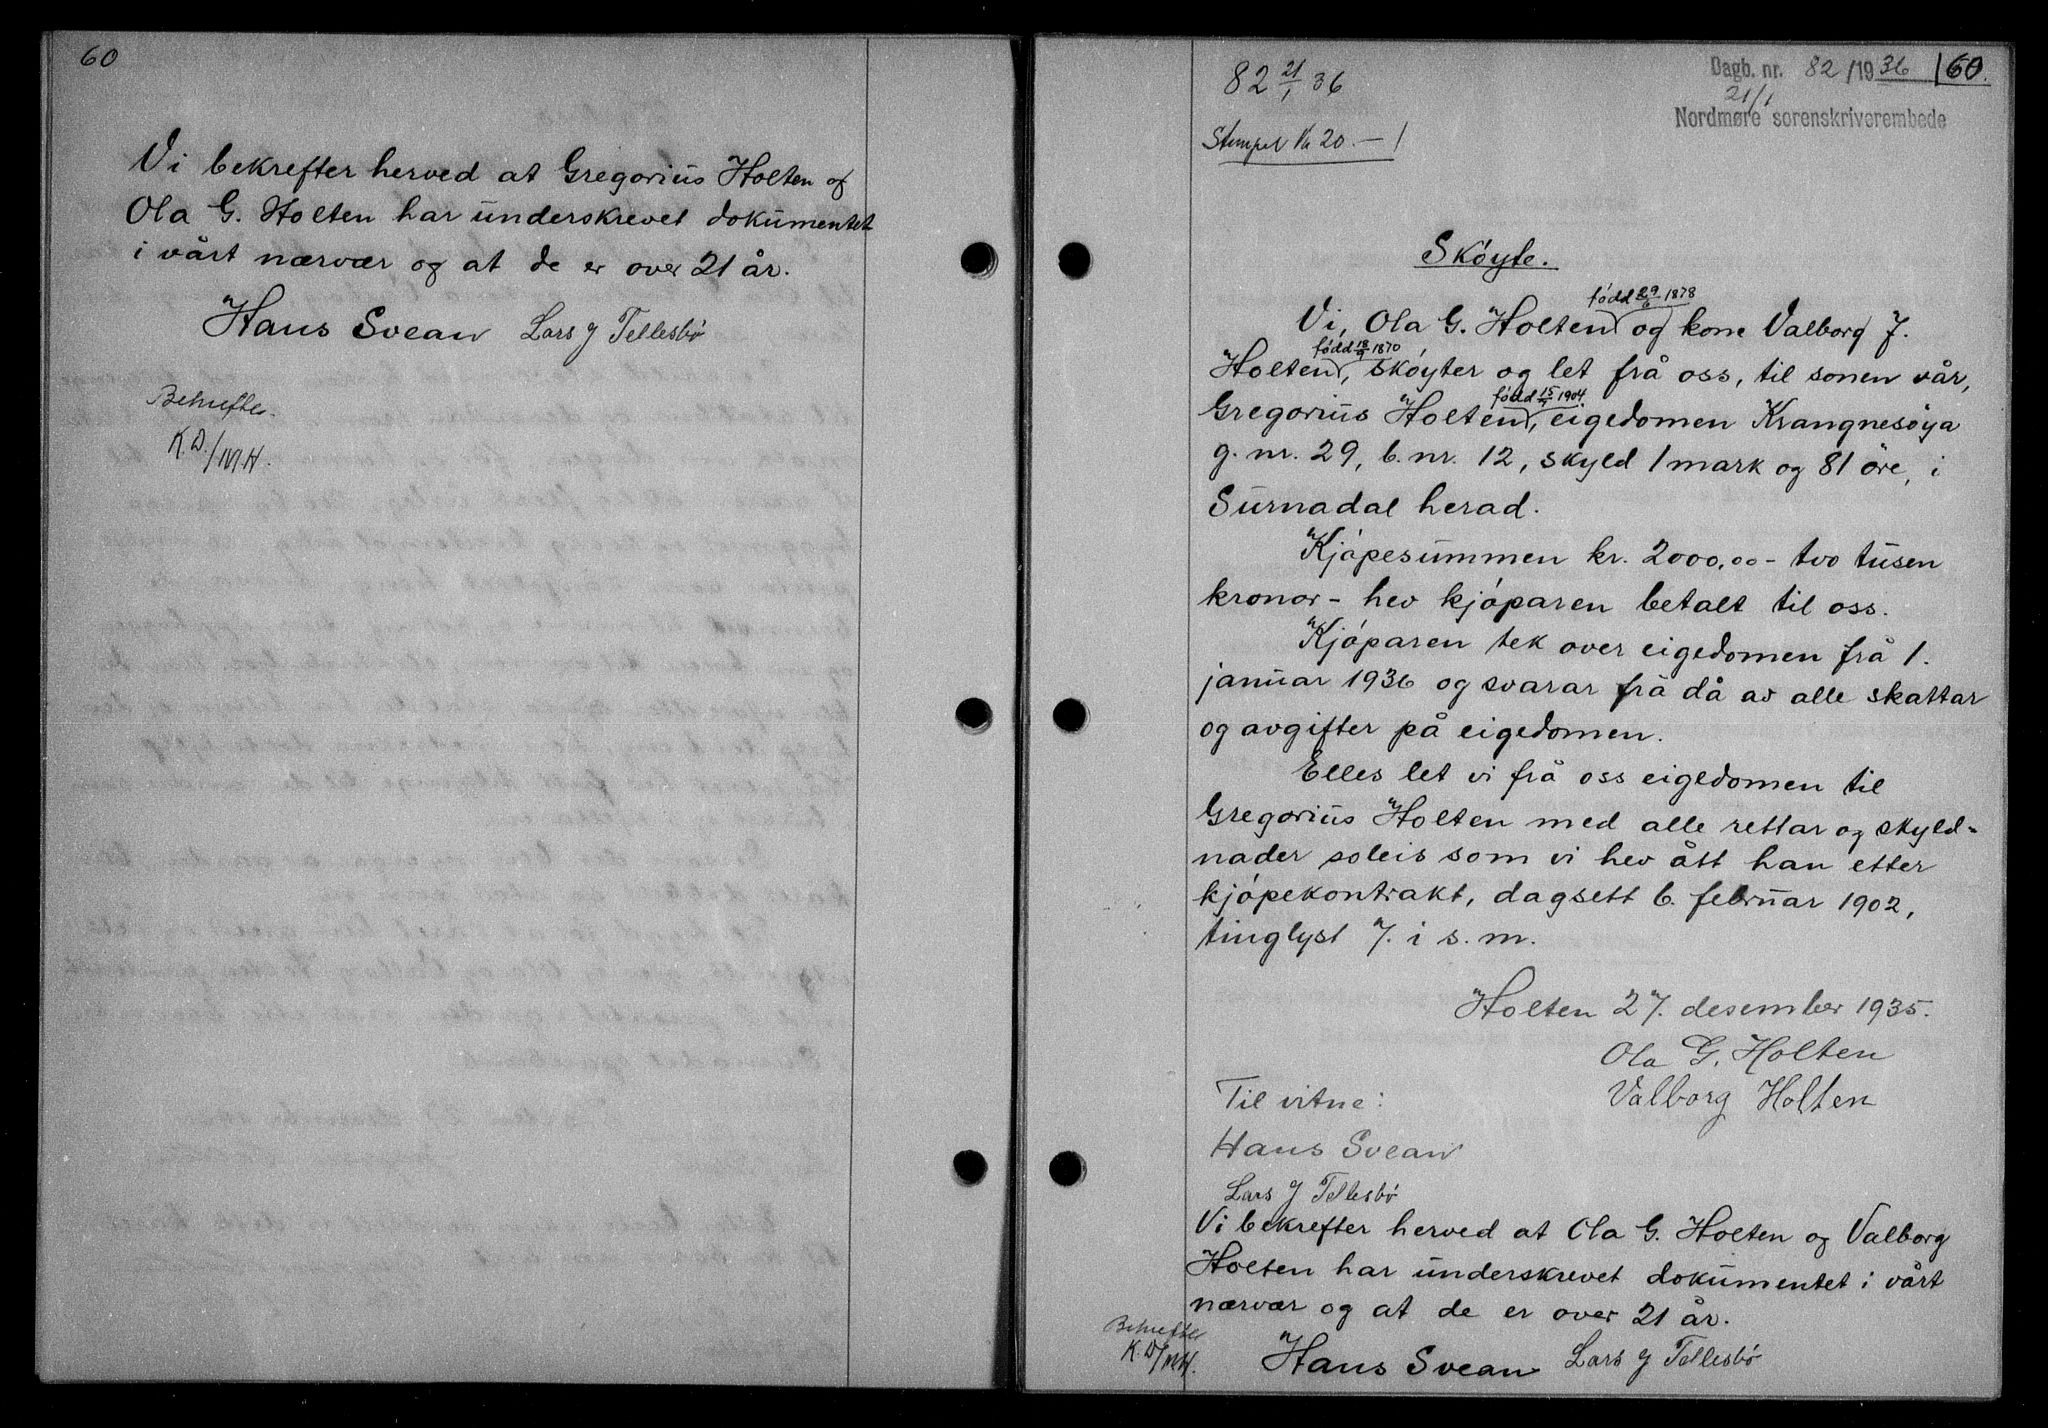 60
Vi bekrefter herved at Gregorius Holten og
Ola G. Holten har underskrevet dokumentet
i vårt nærvær og at de er over 21 år.
Hans Svean Lars J Tellesbø
Bekreftes.
K.D./MH.
82 21/1 36
Dagb. nr. 82/1936 | 60.
21/1
Nordmøre sorenskriverembede
Stempel kr 20.—/
Skøyte.
født 29/6 1878
Vi, Ola G. Holten, og kone Valborg J.
født 18/9 1870
Holten, skøyter og let frå oss, til sonen vår,
født 15/9 1904
Gregorius Holten, eigedomen Krangnesøya
g. nr. 29, b. nr. 12, skyld 1 mark og 81 öre, i
Surnadal herad.
Kjøpesummen kr. 2000,00 - tvo tusen
kronor - hev kjøparen betalt til oss.
Kjøparen tek over eigedomen frå 1.
januar 1936 og svarar frå då av alle skattar
og avgifter på eigedomen.
Elles let vi frå oss eigedomen til
Gregorius Holten med alle rettar og skyld=
nader soleis som vi hev ått han etter
kjøpekontrakt, dagsett 6. februar 1902,
tinglyst 7. i s. m.
Holten 27. desember 1935.
Ola G. Holten
Valborg Holten
Til vitne:
Hans Svean
Lars J Tellesbø
Vi bekrefter herved at Ola G. Holten og Valborg
Holten har underskrevet dokumentet i vårt
nærvær og at de er over 21 år.
Bekreftes
K.D/MH.
Hans Svean Lars J Tellesbø